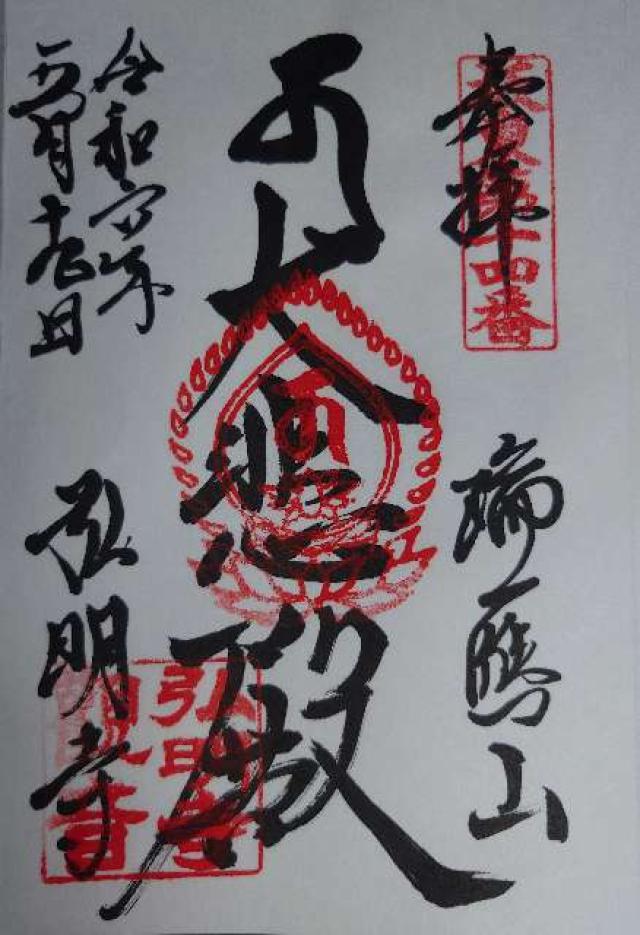 奉拝
四番
瑞應山
大悲殿
令和六年
五月十九日
弘明寺
弘明寺